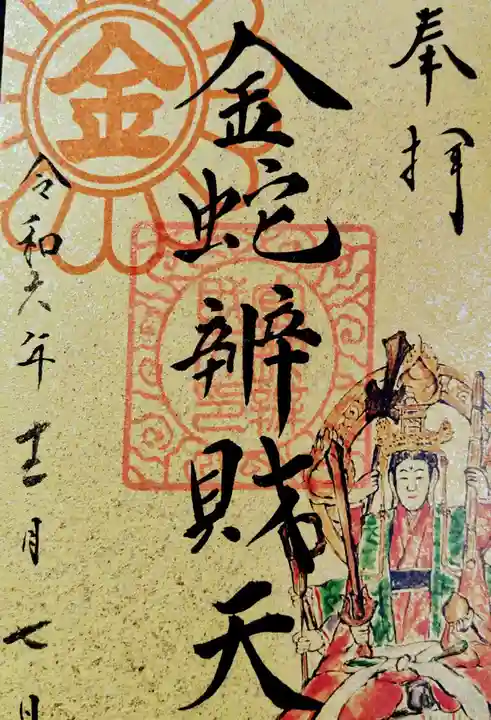 奉拝
金蛇辨財天
令和六年十二月七日
金